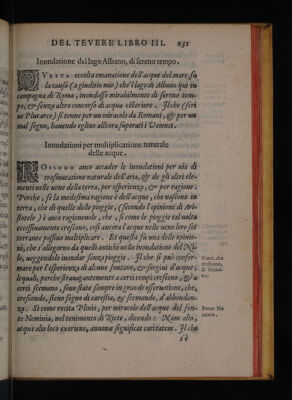 DEL TEVERE LIBRO III. 231
Inondatione del lago Albano, di sereno tempo.
QVESTA occolta emanatione dell'acque del mare, fu
la causa (a giuditio mio) che'l lago di Albano qui in
campagna di Roma, inondasse mirabilmente di sereno tem-
po, & senza altro concorso di acqua esteriore. Ilche (scri
ue Plutarco) si tenne per un miracolo da Romani, & per un
mal segno, hauendo eglino allhora superati i Veienti.
Inondationi per multiplicatione naturale
delle acque.
POSSONO anco accader le inondationi per uia di
trasmutatione naturale dell'aria, & de gli altri ele-
menti nelle uene della terra, per esperienza, & per ragione.
Perche, se la medesima ragione è dell'acque, che nascono in
terra, che di quelle delle pioggie, (secondo l'opinione di Ari-
stotele) è anco ragioneuole, che, si come le pioggie tal uolta
eccessiuamente crescono, così ancora l'acque nelle uene lor sot
terranee possino multiplicare. Et questa fu una delle opinio-
ni, che s'allegorno da quelli antichi nella inondatione del Ni-
lo, ueggendolo inondar senza pioggie. Il che si può confer-
mare per l'esperienza di alcune fontane, & sorgiui d'acque,
lequali, perche strauagantemente a certi tempi crescono, & a
certi scemano, sono state sempre in grande osseruatione, che,
crescendo, sieno segno di carestia, & scemando, d'abbondan-
za. Si come recita Plinio, per miracolo dell'acque del fon-
te Neminia, nel tenimento di Riete, dicendo: Nam alto,
atque alio loco exoriens, annonæ significat caritatem. Il che
Fonti, che
crescono,
& scema-
no.
Fonte Ne
minia.
sè